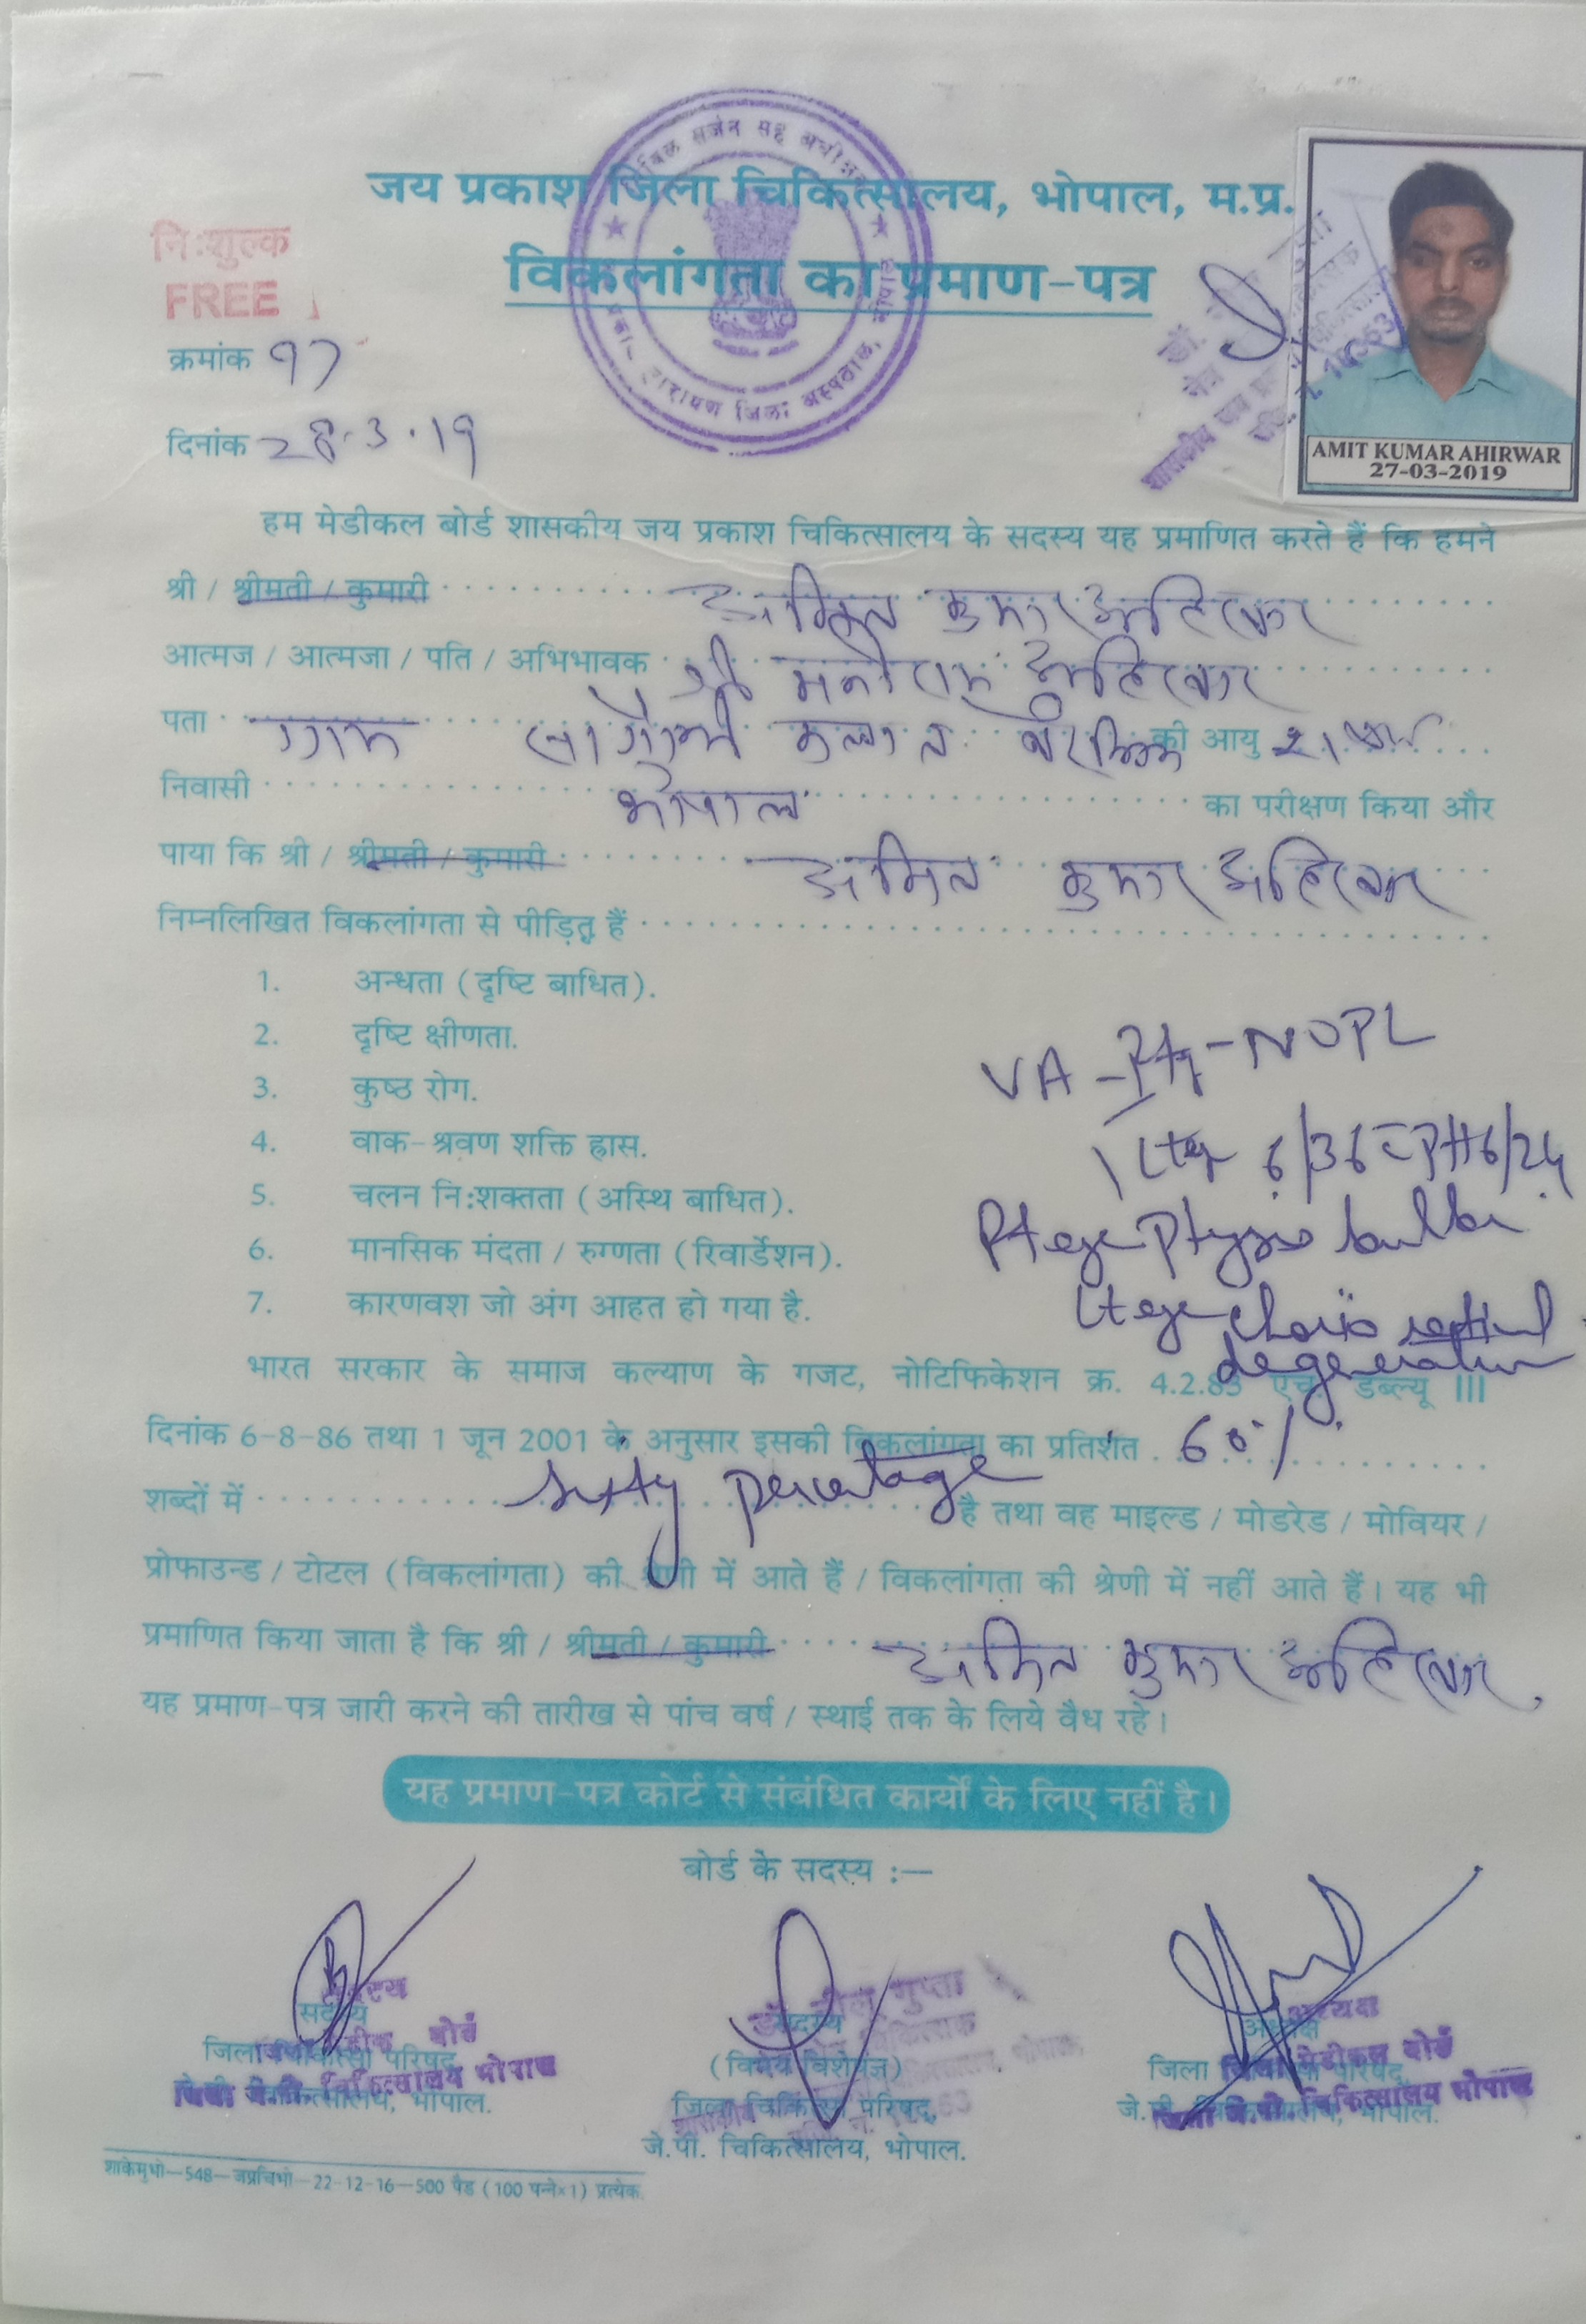 जय प्रकाश जिला चिकित्सालय, भोपाल, म.प्र.
विकलांगता का प्रमाण-पत्र
नि:शुल्क
FREE
क्रमांक 97
दिनांक 28.3.19
AMIT KUMAR AHIRWAR
27-03-2019
हम मेडीकल बोर्ड शासकीय जय प्रकाश चिकित्सालय के सदस्य यह प्रमाणित करते हैं कि हमने
श्री / श्रीमती / कुमारी अमित कुमार अहिरवार
आत्मज / आत्मजा / पति / अभिभावक श्री मनीराम अहिरवार
पता ग्राम की आयु 21 वर्ष
निवासी भोपाल का परीक्षण किया और
पाया कि श्री / श्रीमती / कुमारी अमित कुमार अहिरवार
निम्नलिखित विकलांगता से पीड़ित हैं
1. अन्धता (दृष्टि बाधित).
2. दृष्टि क्षीणता.
3. कुष्ठ रोग.
4. वाक-श्रवण शक्ति ह्रास.
5. चलन नि:शक्तता (अस्थि बाधित).
6. मानसिक मंदता / रुग्णता (रिवार्डेशन).
7. कारणवश जो अंग आहत हो गया है.
VA - Rt - NOPL
Lt 6/36 PH 6/24
Rt eye Pthysis bulbi
Lt eye degeneration
भारत सरकार के समाज कल्याण के गजट, नोटिफिकेशन क्र. 4.2.83 एच. डब्ल्यू III
दिनांक 6-8-86 तथा 1 जून 2001 के अनुसार इसकी विकलांगता का प्रतिशत 60%
शब्दों में Sixty percetage है तथा वह माइल्ड / मोडरेड / मोवियर /
प्रोफाउन्ड / टोटल (विकलांगता) की श्रेणी में आते हैं / विकलांगता की श्रेणी में नहीं आते हैं। यह भी
प्रमाणित किया जाता है कि श्री / श्रीमती / कुमारी अमित कुमार अहिरवार
यह प्रमाण-पत्र जारी करने की तारीख से पांच वर्ष / स्थाई तक के लिये वैध रहे।
यह प्रमाण-पत्र कोर्ट से संबंधित कार्यों के लिए नहीं है।
बोर्ड के सदस्य :—
सदस्य
जिला चिकित्सा परिषद्
जे.पी. चिकित्सालय, भोपाल.
सदस्य
(विषय विशेषज्ञ)
जिला चिकित्सा परिषद्,
जे.पी. चिकित्सालय, भोपाल.
अध्यक्ष
जिला चिकित्सा परिषद्,
जे.पी. चिकित्सालय, भोपाल.
शाकेमुभो—548—जप्रचिभो—22-12-16—500 पैड (100 पन्ने×1) प्रत्येक.